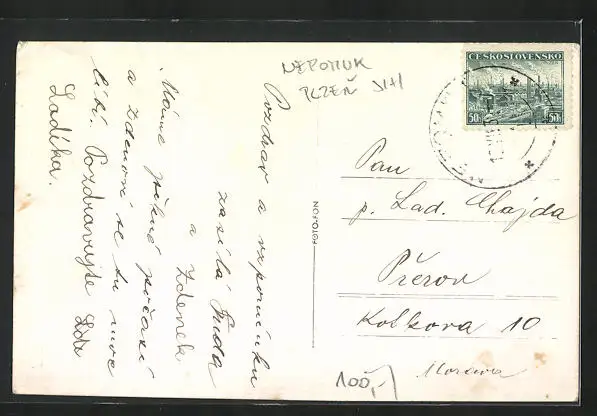 NEPOMUK
PLZEŇ JIH
ČESKOSLOVENSKO
50h 50h
Pozdrav a vzpomínku
zasílá Jenda
a Zdenek
Máme pěkné počasí
a Zdenovi se tu moc
líbí. Pozdravujte
Ladíka.
FOTO-FON
Pan
p. Lad. Chajda
Přerov
Kolkova 10
Morava
100,-